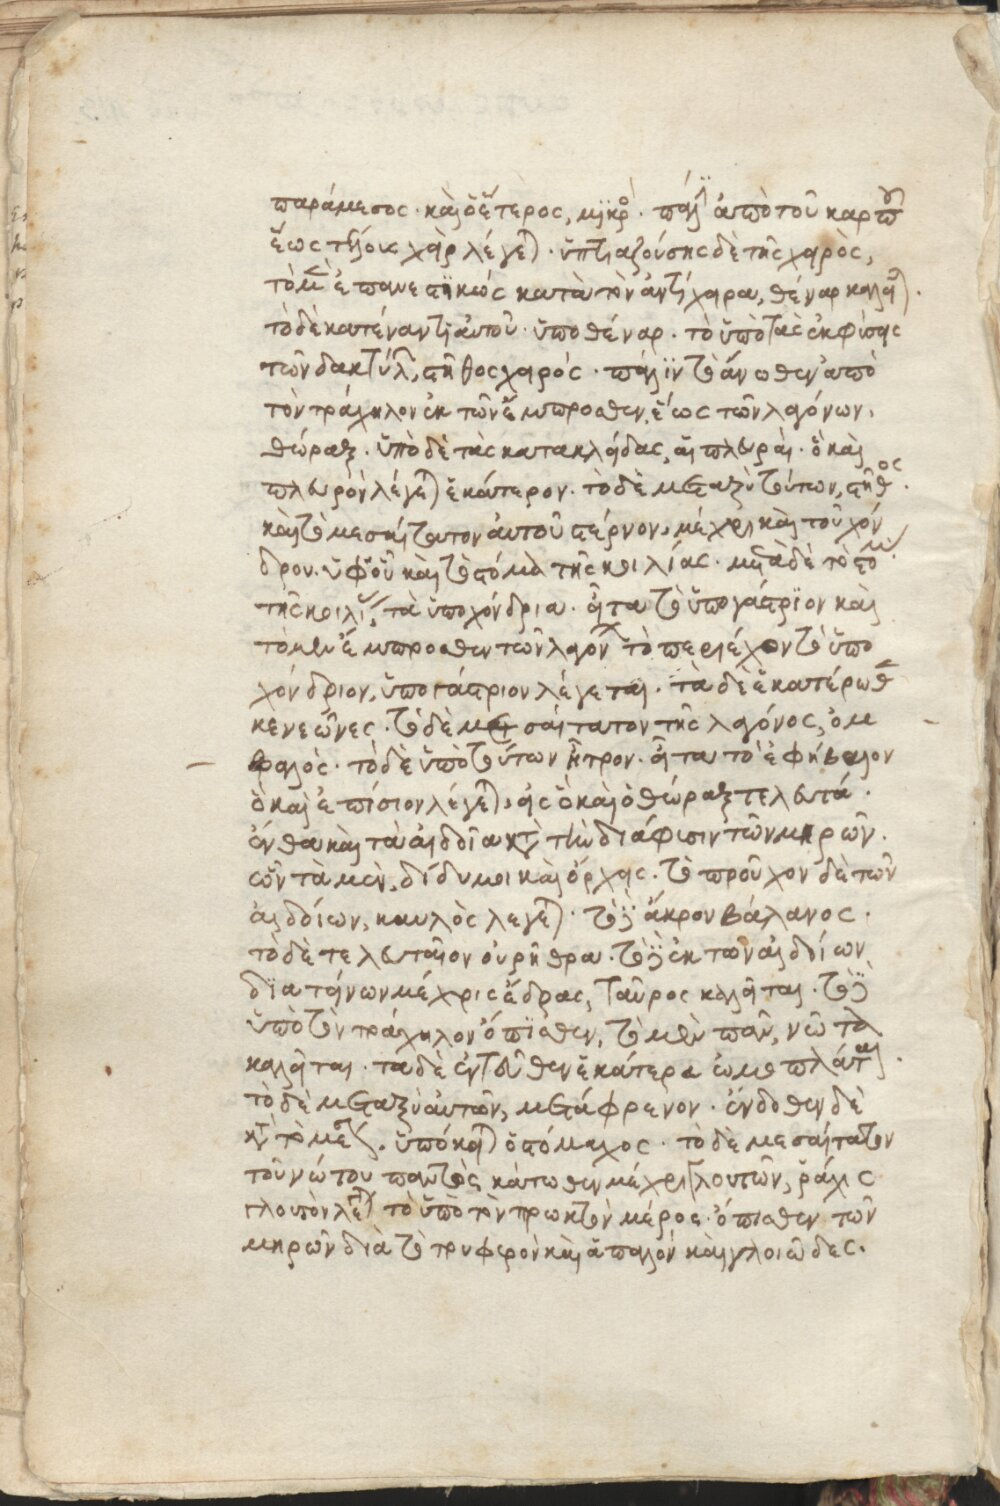 παράμεσος· καὶ ὁ ἕτερος, μϊκρὸ· πάλϊ ἀπὸ τοῦ καρποῦ
ἕως τέλους χεὶρ λέγε). ὑπτιαζούσης δὲ τῆς χειρὸς,
τὸ μὲν ἐπανεστηκὼς κατὰ τὸν ἀντίχειρα, θέναρ καλεῖ).
τὸ δὲ κατέναντι αὐτοῦ· ὑποθέναρ. τὸ ὑπὸ τὰς ἐκφύσεις
τῶν δακτύλ, στῆθος χειρός· πάλϊν τὸ ἄνωθεν ἀπὸ
τὸν τράχηλον ἐκ τῶν ἔμπροσθεν, ἕως τῶν λαγόνων,
θώραξ. ὑπὸ δὲ τὰς κατακλεῖδας, αἱ πλευραὶ. ὃ καὶ
πλευρὸν λέγε) ἑκάτερον. τὸ δὲ μεταξὺ τούτων, στῆθος.
καὶ τὸ μεσαίτατον αὐτοῦ στέρνον, μέχρι καὶ τοῦ χόν
δρου. ὑφ' οὗ καὶ τὸ στόμα τῆς κοιλίας. μετὰ δὲ τὸ στομ
τῆς κοιλί, τὰ ὑποχόνδρια. εἶτα τὸ ὑπογάστρϊον καὶ
τὸ μὲν ἔμπροσθεν τῶν λαγόν τὸ περιέχον τὸ ὑπο
χόνδριον, ὑπογάστριον λέγεται. τὰ δὲ ἑκατέρωθ
κενεῶνες. τὸ δὲ μεσαίτατον τῆς λαγόνος, ὀμ
φαλὸς. τὸ δὲ ὑπὸ τούτων ἦτρον. εἶτα τὸ ἐφήβαιον
ὃ καὶ ἐπίσιον λέγε), εἰς ὃ καὶ ὁ θώραξ τελευτᾶ.
ἔνθα καὶ τὰ αἰδοῖα κτ τὴν διάφυσιν τῶν μηρῶν.
ὧν τὰ μὲν, δίδυμοι καὶ ὄρχεις. τὸ προὖχον δὲ τῶν
αἰδοίων, καυλὸς λεγε). τὸ δὲ ἄκρον βάλανος.
τὸ δὲ τελευταῖον οὐρήθρα. τὸ δὲ ἐκ τῶν αἰδοίων
διατεῖνων μέχρις ἕδρας, ταῦρος καλεῖται. τὸ δὲ
ὑπὸ τὸν τράχηλον ὄπϊσθεν, τὸ μὲν πᾶν, νῶτα
καλεῖται. τὰ δὲ ἐντεῦθεν ἑκάτερα ὠμοπλάται.
τὸ δὲ μεταξὺ αὐτῶν, μετάφρενον. ἔνδοθεν δὲ
κτ τὸ μετ. ὑπόκει) ὁ στόμαχος. τὸ δὲ μεσαίτατον
τοῦ νώτου παντὸς κάτωθεν μέχρι γλουτῶν, ῥάχις
γλουτὸν λε) τὸ ὑπὸ τὸν πρωκτὸν μέρος ὄπισθεν τῶν
μηρῶν διὰ τὸ τρυφερὸν καὶ ἁπαλὸν καὶ γλοιῶδες.